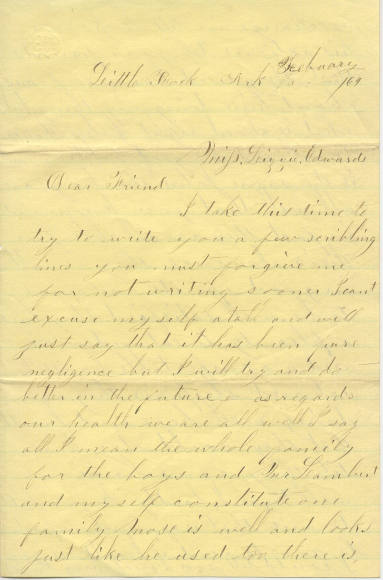 Little Rock Ark Feebuary
/69
Miss, Lizzie, Edwards
Dear Friend
I take this time to
try to write you a few scribling
lines you must forgive me
for not writing sooner I cant
excuse myself atall and will
just say that it has been pure
negligence but I will try and do
better in the future as regards
our health we are all well I say
all I mean the whole family
for the boys and Mr Lambert
and myself constitute one
family Mose is well and looks
just like he used too there is